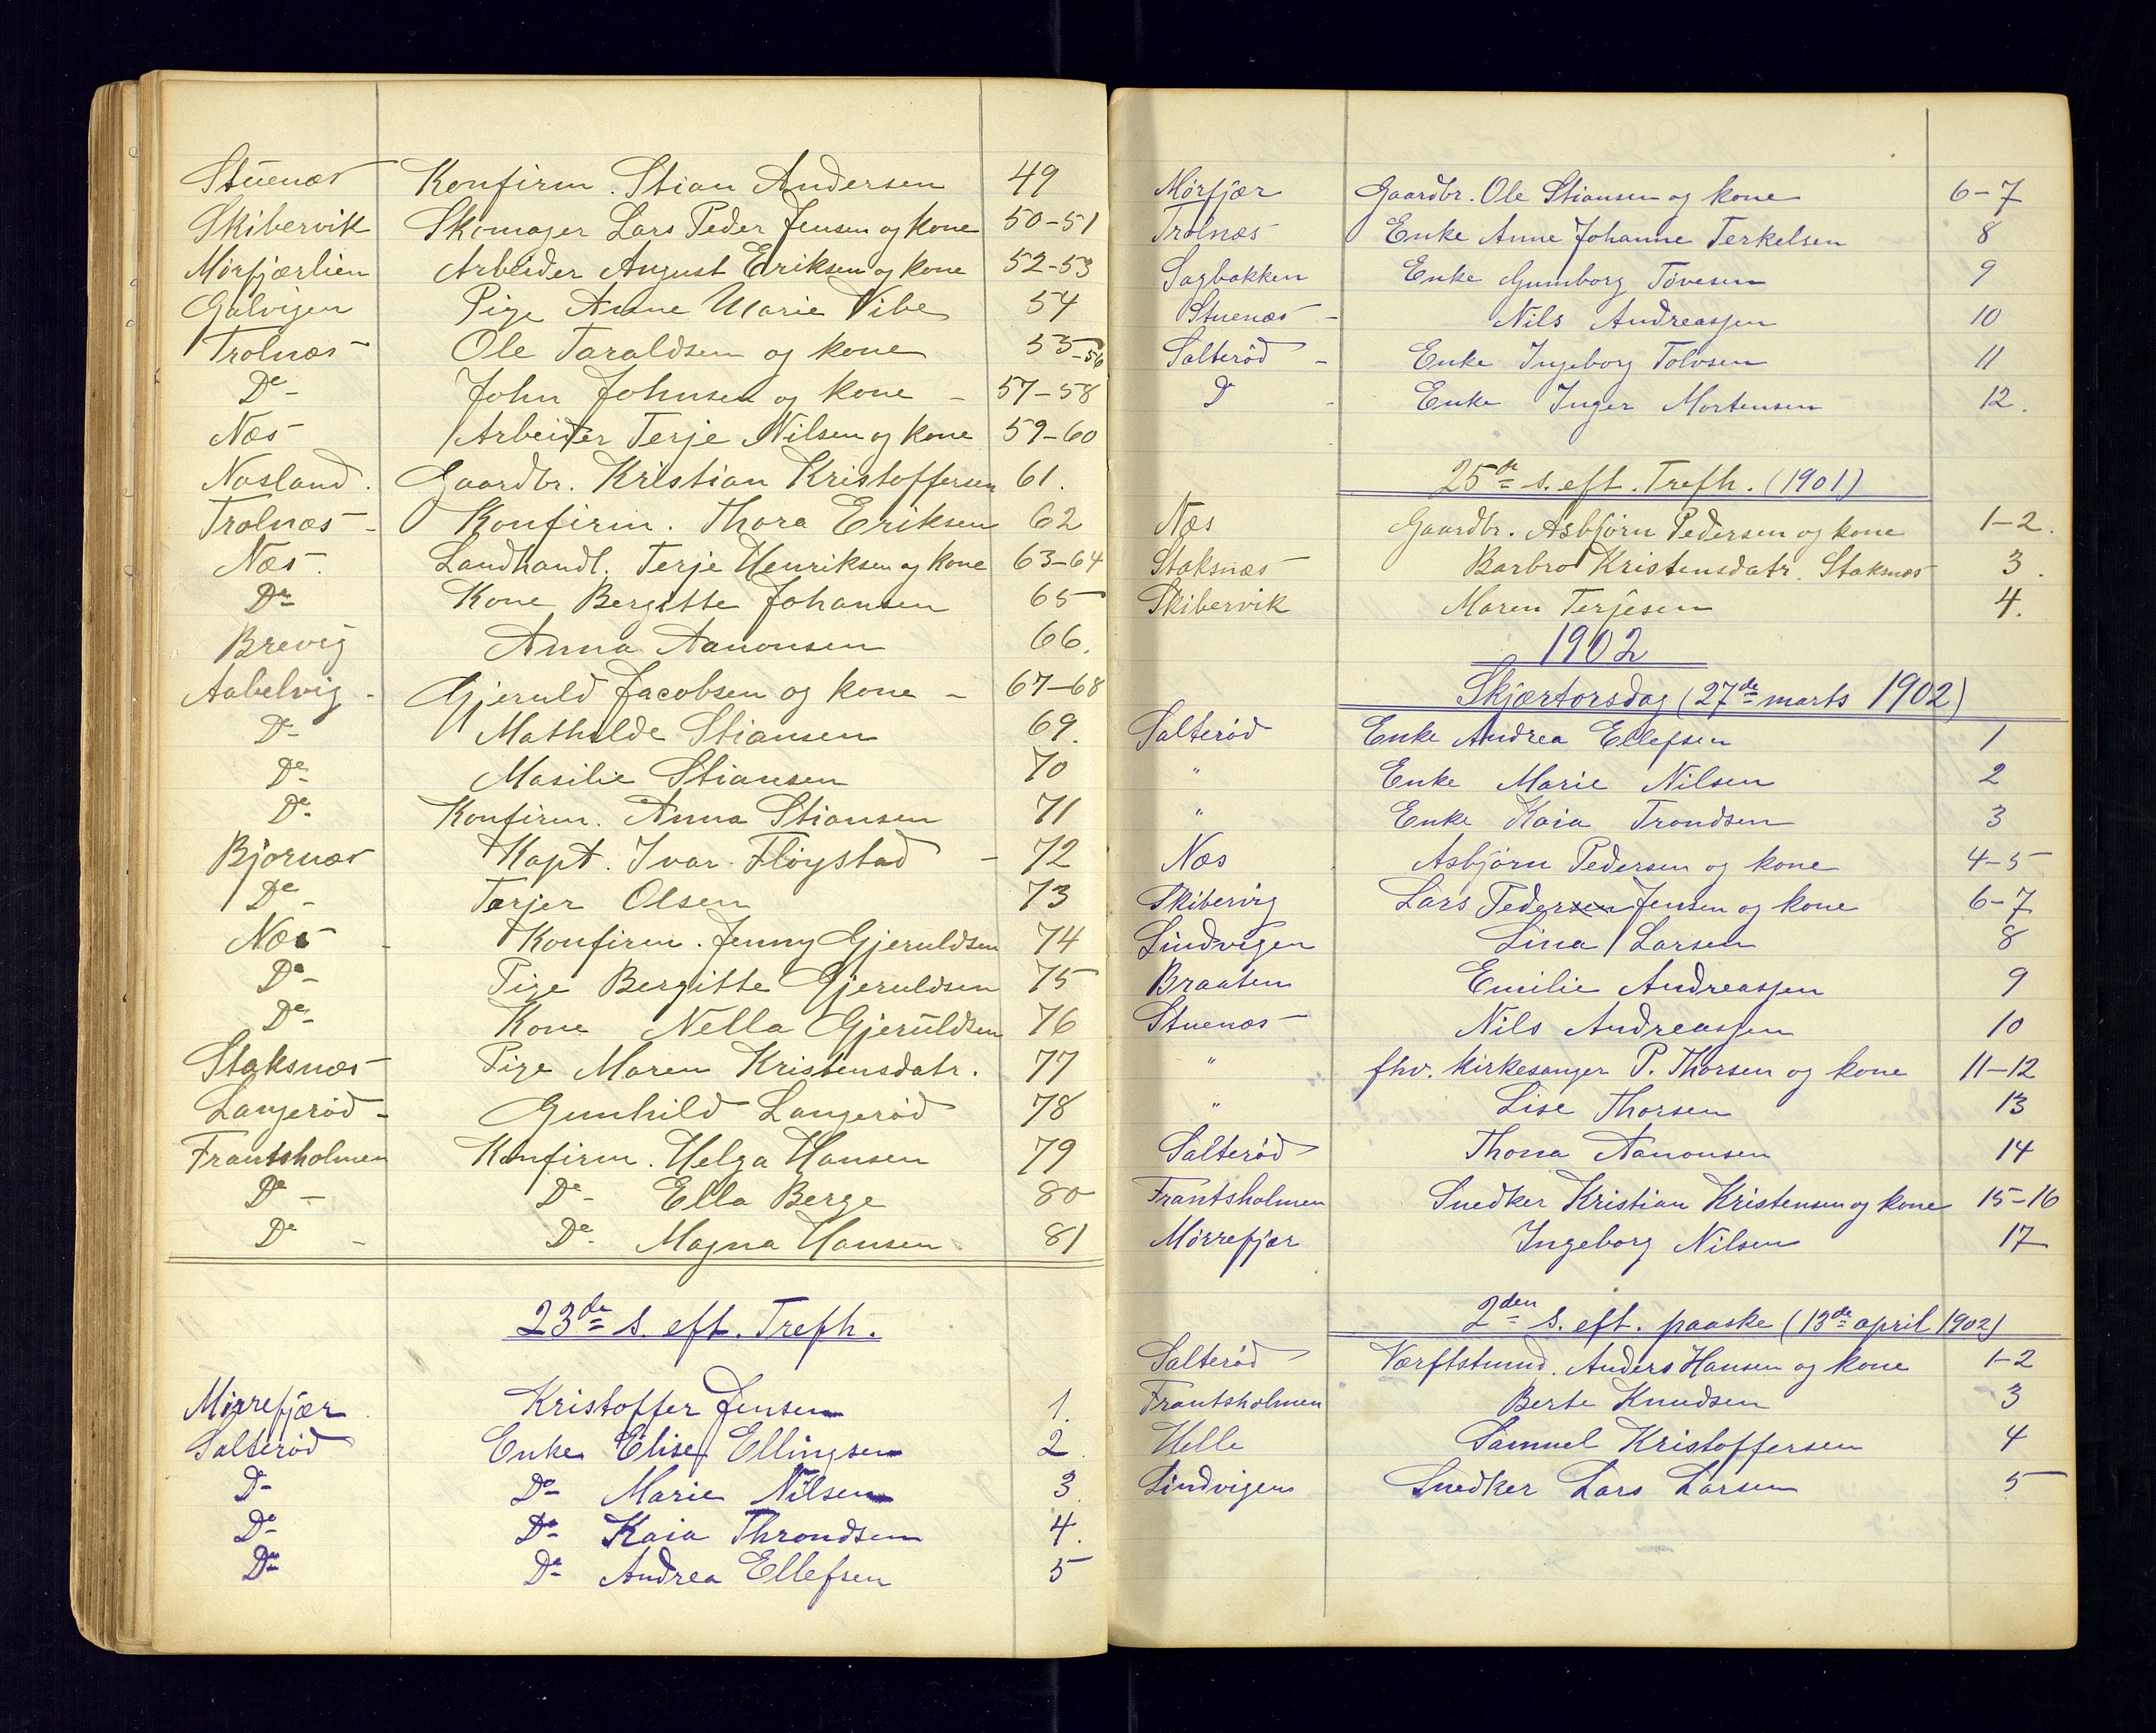 Stuenæs Konfirm. Stian Andersen 49
Skibervik Skomager Lars Peder Jensen og kone 50-51
Mørfjærlien Arbeider August Eriksen og kone 52-53
Galvigen Pige Anne Marie Vibe 54
Trolnæs Ole Taraldsen og kone 55-56
De- John Johnsen og kone - 57-58
Næs Arbeider Terje Nilsen og kone 59-60
Nasland. Gaardbr. Kristian Kristoffersen 61.
Trolnæs - Konfirm. Thora Eriksen 62
Næs. Landhandl. Terje Henriksen og kone 63-64
Do Kone Bergitte Johansen 65
Brevig Anna Aanonsen 66.
Aabelvig - Gjeruld Jacobsen og kone - 67-68
Do Mathilde Stiansen 69.
Do Masilie Stiansen 70
Do Konfirm. Anna Stiansen 71
Bjørnæs Kapt. Ivar Fløystad - 72
Do - Terjer Olsen 73
Næs - Konfirm. Jenny Gjeruldsen 74
Do - Pige Bergitte Gjeruldsen 75
Do Kone Nella Gjeruldsen 76
Staksnæs Pige Maren Kristensdatr. 77
Langerød - Gunhild Langerød 78
Frantsholmen Konfirm. Helga Hansen 79
Do - Do - Ella Berge 80
Do - Do - Magna Hansen 81
23de s. eft. Trefh.
Mørrefjær Kristoffer Jensen 1.
Salterød Enke Elise Ellingsen 2.
Do Do Marie Nilsen 3
Do Do Kaia Throndsen 4.
Do Do Andrea Ellefsen 5
Mørfjær Gaardbr. Ole Stiansen og kone 6-7
Trolnæs Enke Anne Johanne Terkelsen 8
Sagbakken Enke Gumborg Tovesen 9
Stuenæs - Nils Andreassen 10
Salterød - Enke Ingeborg Tolvsen 11
Do - Enke Inger Mortensen 12.
25de s. eft. Trefh. (1901)
Næs Gaardbr. Asbjørn Pedersen og kone 1-2.
Staksnæs Barbro Kristensdatr. Staksnæs 3.
Skibervik Maren Terjesen 4.
1902
Skjærtorsdag (27de marts 1902)
Salterød Enke Andrea Ellefsen 1
" Enke Marie Nilsen 2
" Enke Kaia Trondsen 3
Næs Asbjørn Pedersen og kone 4-5
Skibervig Lars Pedersen Jensen og kone 6-7
Lindvigen Lina Larsen 8
Braaten Emilie Andreassen 9
Stuenæs Nils Andreassen 10
" fhv. kirkesanger P. Thorsen og kone 11-12
" Lise Thorsen 13
Salterød Thona Aanonsen 14
Frantsholmen Snedker Kristian Kristensen og kone 15-16
Mørrefjær Ingeborg Nilsen 17
2den s. eft. paaske (13de april 1902)
Salterød Værftstømmd. Anders Hansen og kone 1-2
Frantsholmen Berte Knudsen 3
Helle Samuel Kristoffersen 4
Lindvigen Snedker Lars Larsen 5